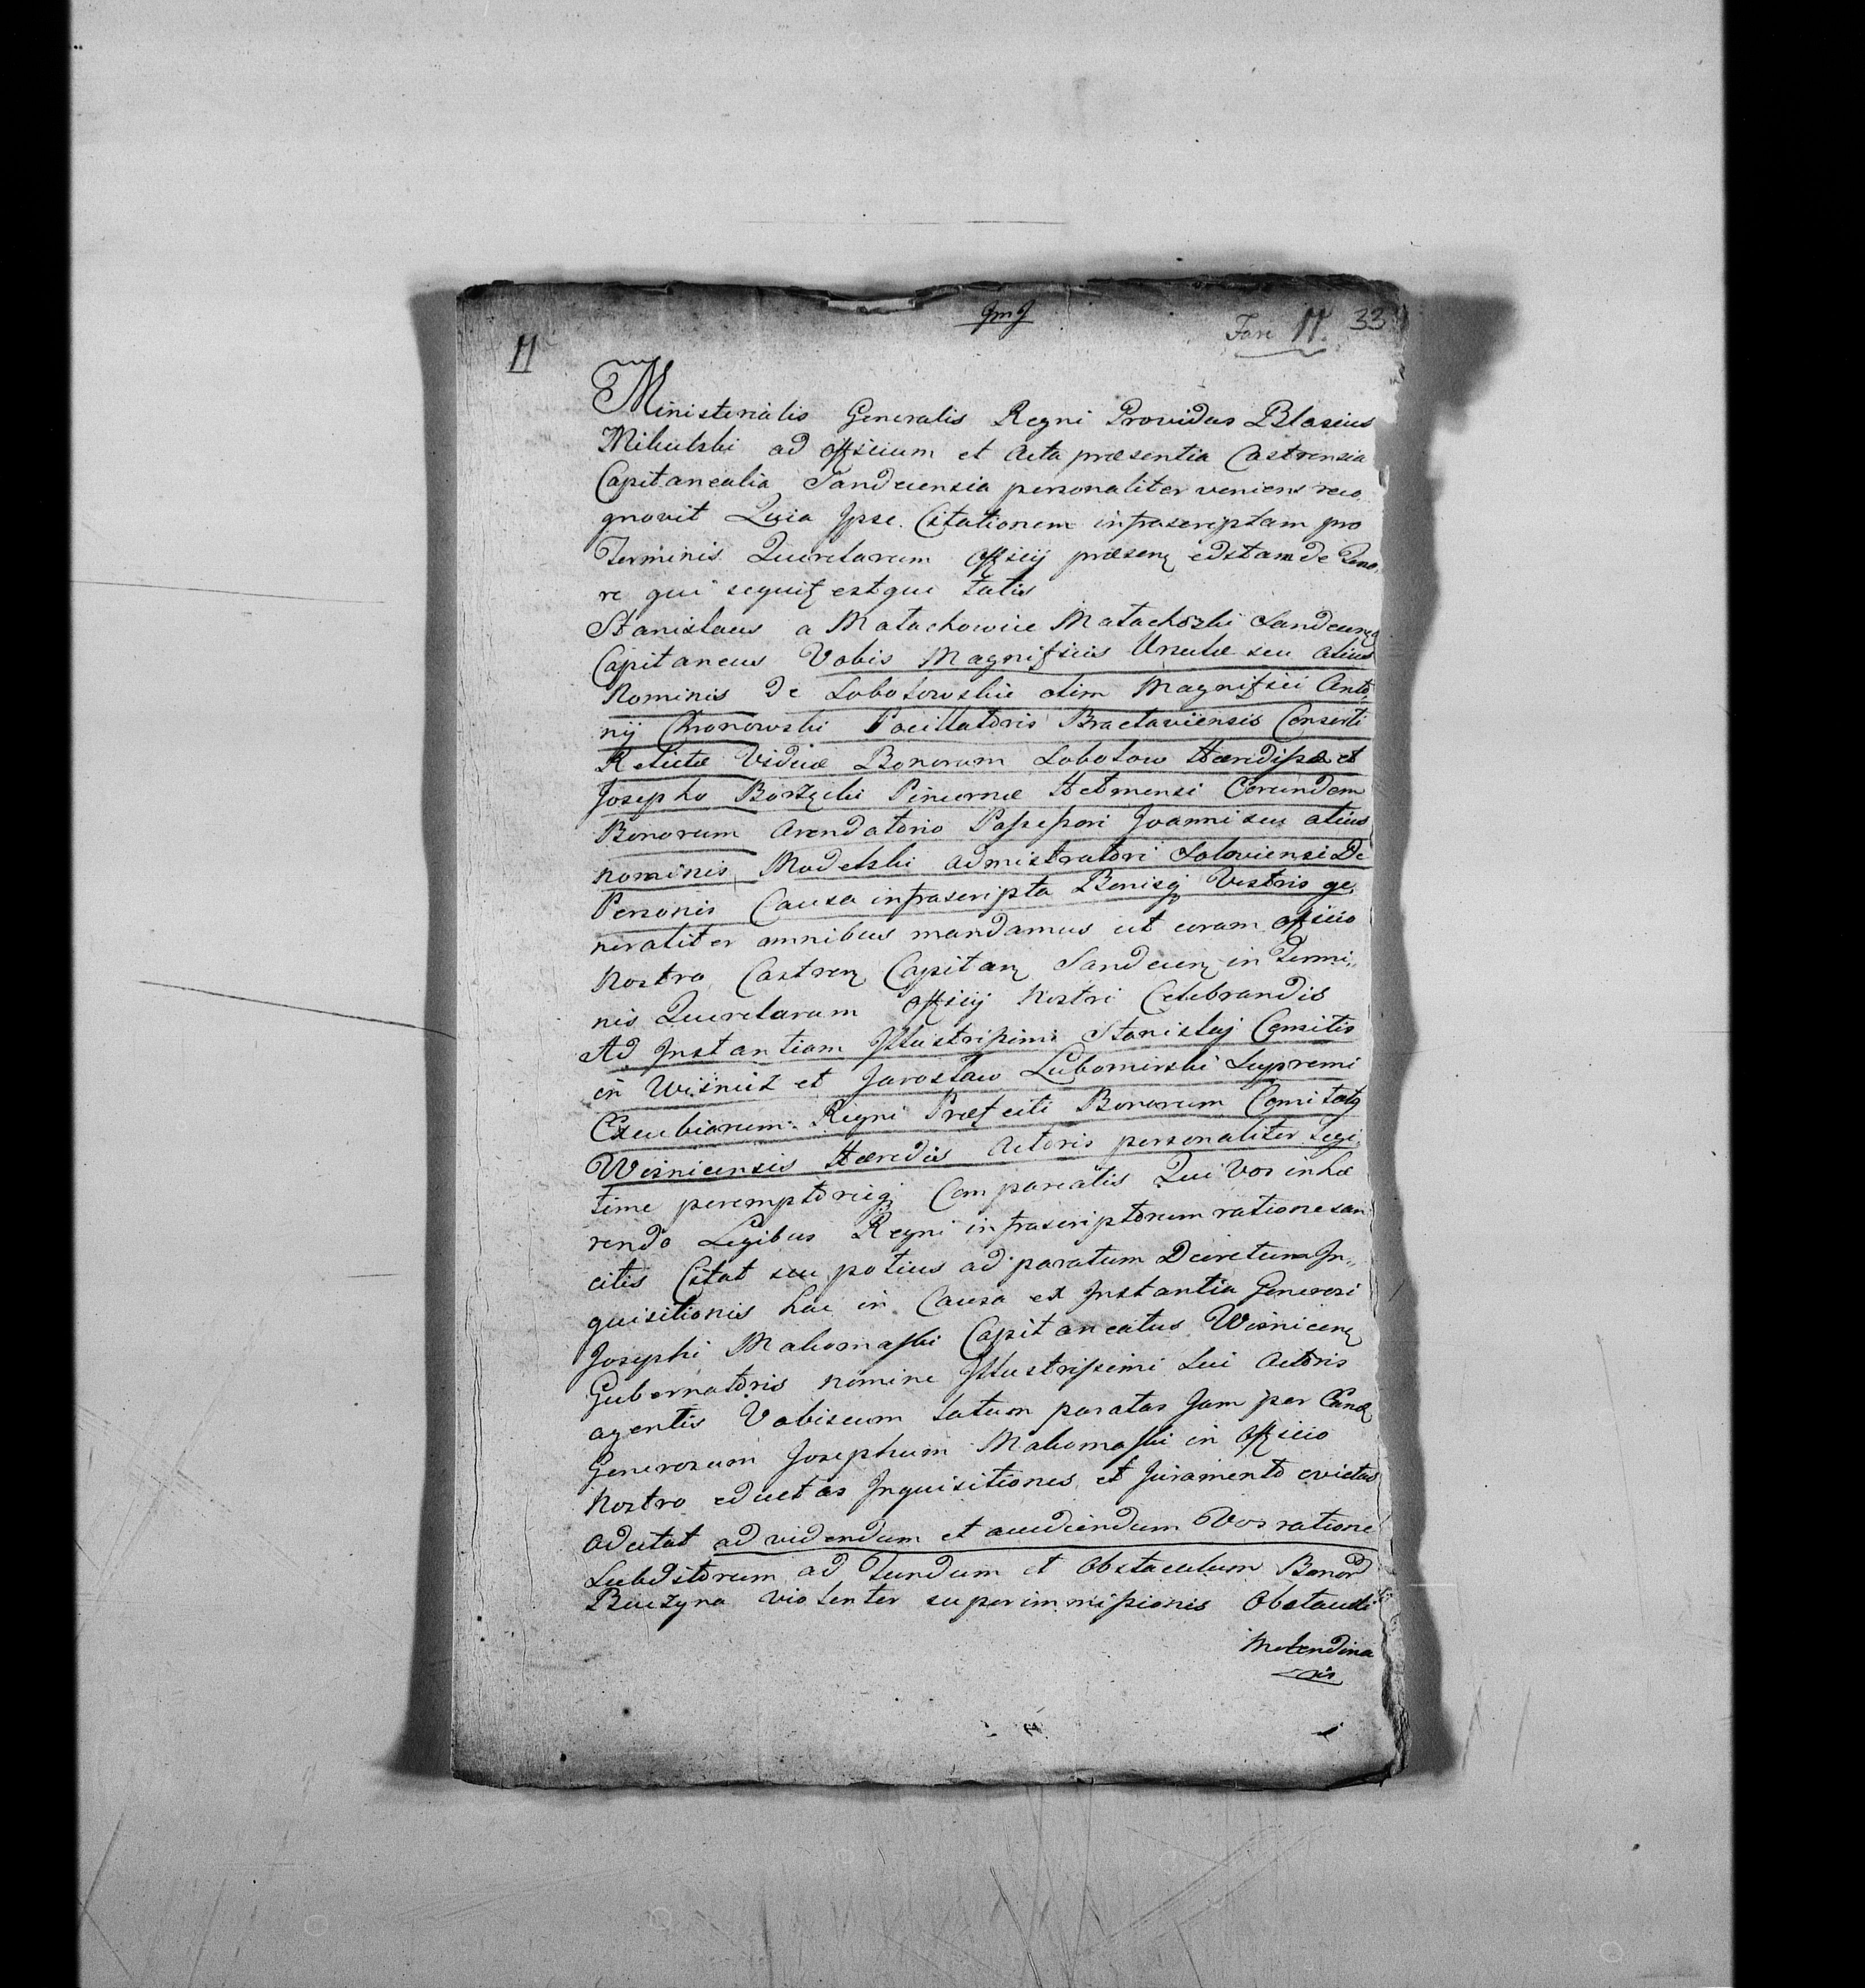 JmJ
Fare 11. 33
11
Ministerialis Generalis Regni Providus Blasius
Mikulski ad officium et Acta præsentia Castrensia
Capitanealia Sandecensia personaliter veniens reco
gnovit Quia Ipse Citationem infrascriptam pro
Terminis Querelarum Officij præsenꝫ edstam de Teno„
re qui sequiꝫ estque talis
Stanislaus a Małachowice Małachoski Sandecenꝫ
Capitaneus Vobis Magnificis Ursulæ seu alius
Nominis de Łobosowskie olim Magnifici Anto„
nij Chronowski Pocillatoris Bractaviensis Consorti
Relictæ Viduæ Bonorum Łobosow Hæredissæ et
Josepho Borzęcki Pincernæ Hetmensi Eorundem
Bonorum Arendatorio Possessori Joanni seu alius
nominis Modelski Admistratori Soloviensi De
Personis Causa infrascripta Bonisqꝫ Vestris ge„
neraliter omnibus mandamus ut coram Officio
Nostro Castrenꝫ Capitanꝫ Sandecenꝫ in Termi„
nis Querelarum Officij Nostri Celebrandis
Ad Instantiam Illustrissimi Stanislaj Comitis
in Wiśnicz et Jarosław Lubomirski Supremi
Excubiarum Regni Præfecti Bonorum Comitatꝫ
Wisnicensis Hæredis Actoris personaliter legi„
time peremptorieqꝫ Compareatis Qui Vos inhæ
rendo Legibus Regni infrascriptorum ratione san
citis Citat seu potius ad paratum Decretum In„
quisitionis hac in Causa ex Instantia Generosi
Josephi Makomaski Capitaneatus Wisnicenꝫ
Gubernatoris nomine Illustrissimi Sui Actoris
agentis Vobiscum latum paratas Jam per Eund
Generosum Josephum Makomaski in Officio
Nostro eductas Inquisitiones et Juramento evictas
Adcitat ad videndum et audiendum Vos ratione
Subditorum ad Fundum et Obstaculum Bonor
Buczyna violenter superimmissionis Obstaculi
Molendina
ris